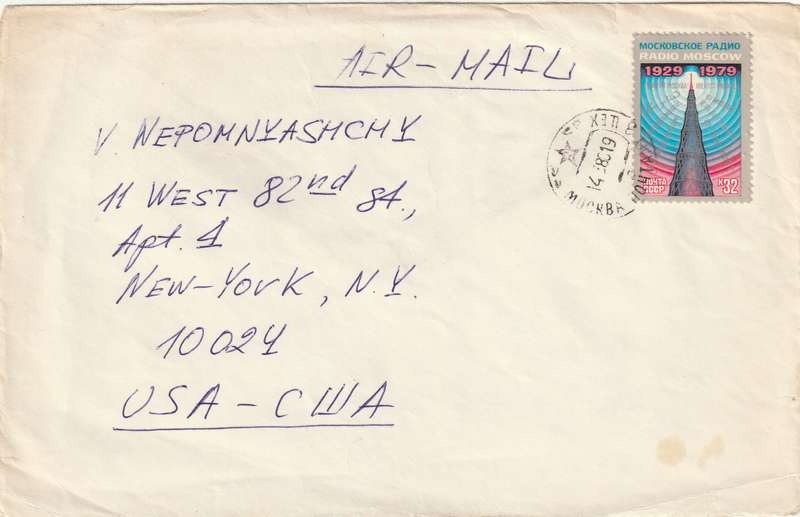 AIR-MAIL
V. NEPOMNYASHCHY
11 WEST 82nd St.,
Apt. 1
NEW-YORK, N.Y.
10024
USA-США
МОСКОВСКОЕ РАДИО
RADIO MOSCOW
1929 1979
ПОЧТА
СССР
К32
МОСКВА